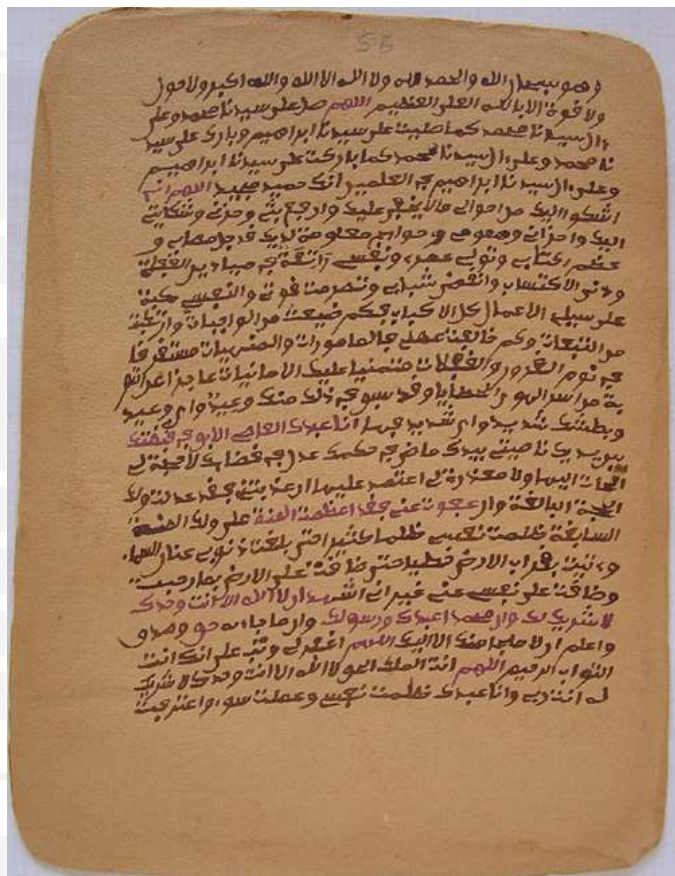 58
وهو سبحان الله والحمد لله ولا اله الا الله والله اكبر ولا حول
ولا قوة الا بالله العلي العظيم اللهم صل على سيدنا محمد وعلى
ءال سيدنا محمد كما صليت على سيدنا ابراهيم وبارك على سيد
نا محمد وعلى ءال سيدنا محمد كما باركت على سيدنا ابراهيم
وعلى ءال سيدنا ابراهيم في العلمين انك حميد مجيد اللهم اني
اشكوا اليك من احوالي ما لا يخفى عليك وارفع بثي وحزني وشكايتي
اليك واحزاني وهمومي وحوايجي معلومة لديك قد جل مصابي و
عظم اكتئابي وتولى عمري ونفسي راتعة في ميادين الغفلة
ودني الاكتساب وانقضى شبابي وتصرمت قوتي والنفس مكبة
على سييء الاعمال كل الاكباب فكم ضيعت من الواجبات وارتكبت
من التبعات وكم خالفت في المامورات والمنهيات مستغرقا
في نوم الغرور والغفلات متمنيا عليك الامانيات عاجزا عن التو
بة من اسر الهوى والخطايا وقد سبق في ذلك منك وعيد واي وعيد
وبطشك شديد واي شديد فها انا عبدك العاصي الابق في قبضتك
بين يديك ناصيتي بيدك ماض في حكمك عدل في قضاؤك لا حجة لي
اليها ولا معذرة لي اعتمد عليها ان عذبتني فقد عدلت ولك
الحجة البالغة وان عفوت عني فقد اعظمت المنة علي ولك المنة
السابغة ظلمت نفسي ظلما كثيرا حتى بلغت ذنوبي عنان السماء
بقراب الارض خطيا حتى ضاقت علي الارض بما رحبت
وضاقت علي نفسي عني غير اني اشهد ان لا اله الا انت وحدك
لا شريك لك وان محمدا عبدك ورسولك وان ما جاء به حق وصدق
واعلم ان لا ملجا منك الا اليك اللهم اغفر لي وتب علي انك انت
التواب الرحيم اللهم انت الملك الحق لا اله الا انت وحدك لا شريك
لك انت ربي وانا عبدك ظلمت نفسي وعملت سوءا واعترفت